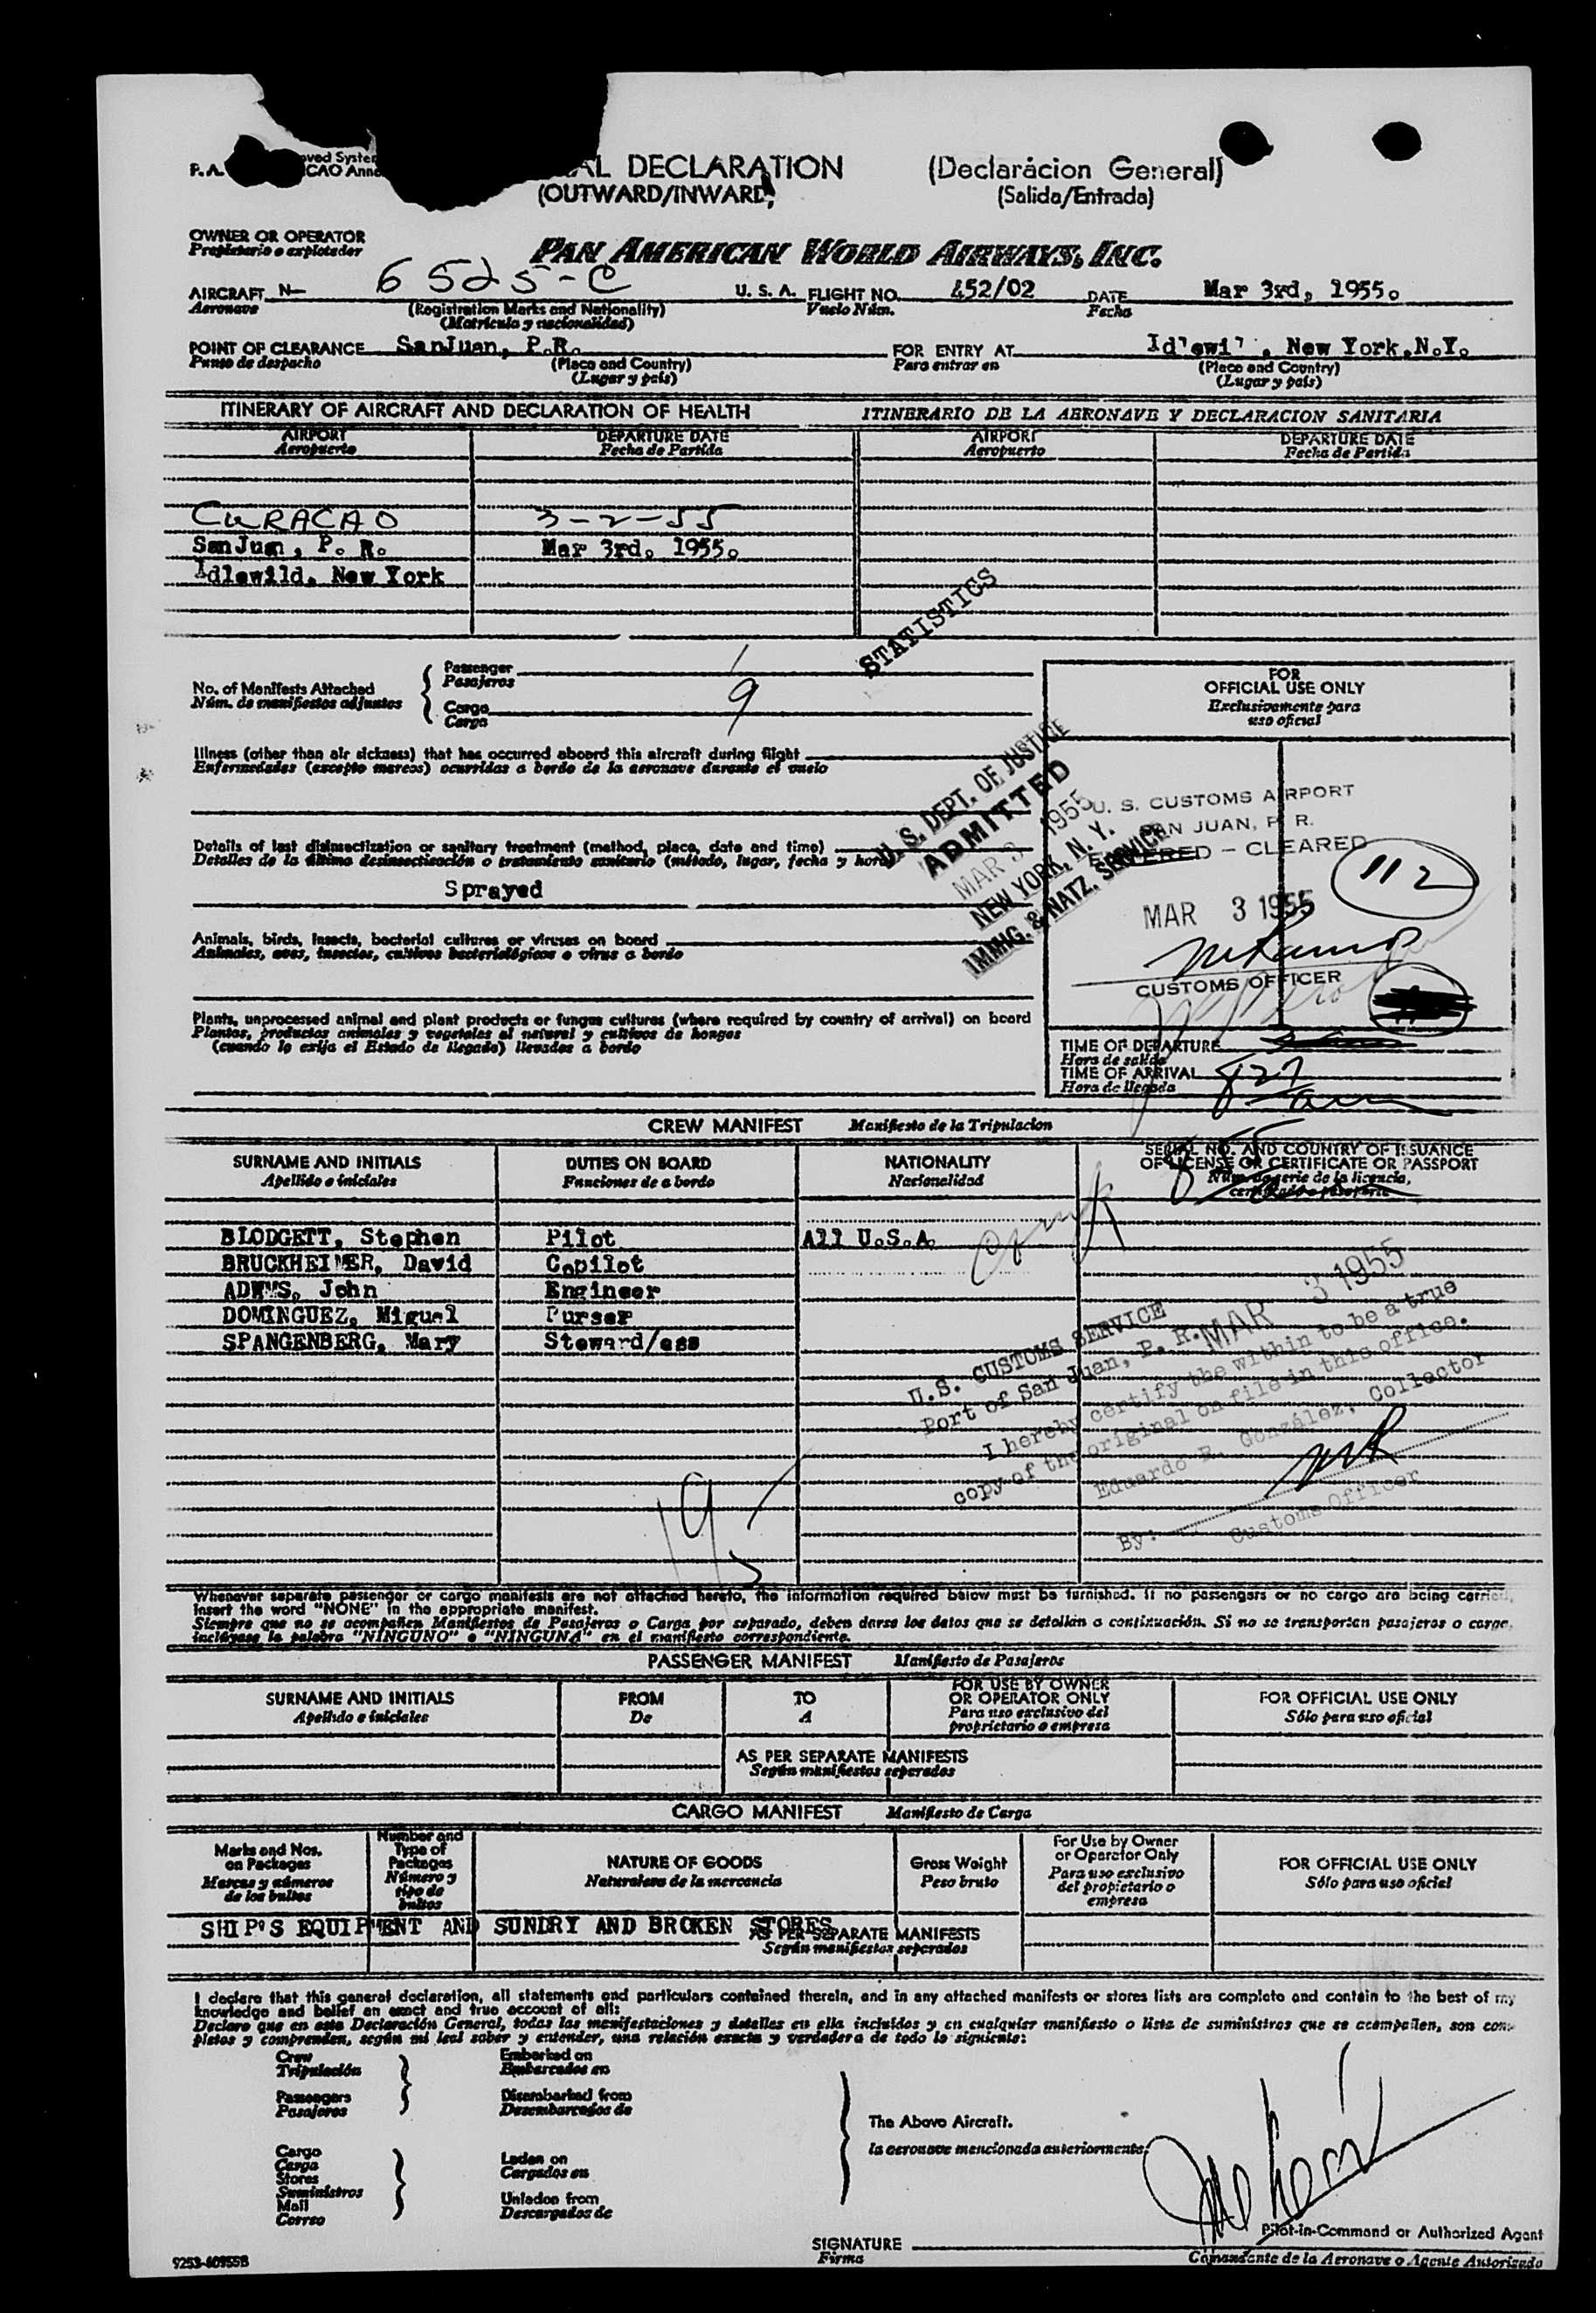 P. A.
oved System
CAO Anne
AL DECLARATION (Declarácion General)
(OUTWARD/INWARD) (Salida/Entrada)
OWNER OR OPERATOR
Propietario o explotador
PAN AMERICAN WORLD AIRWAYS, INC.
AIRCRAFT N- 6525-C U. S. A. FLIGHT NO. 452/02 DATE Mar 3rd, 1955.
Aeronave (Registration Marks and Nationality) Vuelo Núm. Fecha
(Matrícula y nacionalidad)
POINT OF CLEARANCE SanJuan, P.R. FOR ENTRY AT Idlewil , New York.N.Y.
Punto de despacho (Place and Country) Para entrar en (Place and Country)
(Lugar y país) (Lugar y país)
ITINERARY OF AIRCRAFT AND DECLARATION OF HEALTH ITINERARIO DE LA AERONAVE Y DECLARACION SANITARIA
AIRPORT DEPARTURE DATE AIRPORT DEPARTURE DATE
Aeropuerto Fecha de Partida Aeropuerto Fecha de Partida
CURACAO 3-2-55
SanJuan, P. R. Mar 3rd. 1955.
Idlewild, New York
STATISTICS
No. of Manifests Attached
Núm. de manifiestos adjuntos
Passenger 1
Pasajeros
Cargo 9
Carga
FOR
OFFICIAL USE ONLY
Exclusivamente para
uso oficial
Illness (other than air sickness) that has occurred aboard this aircraft during flight
Enfermedades (excepto mareos) ocurridas a bordo de la aeronave durante el vuelo
U. S. DEPT. OF JUSTICE
ADMITTED
MAR 3 1955
NEW YORK, N. Y.
IMMIG. & NATZ. SERVICE
U. S. CUSTOMS AIRPORT
SAN JUAN, P. R.
ENTERED – CLEARED
112
MAR 3 1955
CUSTOMS OFFICER
Details of last disinsectization or sanitary treatment (method, place, date and time)
Detalles de la última desinsectización o tratamiento sanitario (método, lugar, fecha y hora)
Sprayed
Animals, birds, insects, bacterial cultures or viruses on board
Animales, aves, insectos, cultivos bacteriológicos o virus a bordo
Plants, unprocessed animal and plant products or fungus cultures (where required by country of arrival) on board
Plantas, productos animales y vegetales al natural y cultivos de hongos
(cuando lo exija el Estado de llegada) llevados a bordo
TIME OF DEPARTURE
Hora de salida
TIME OF ARRIVAL 827
Hora de llegada am
CREW MANIFEST Manifiesto de la Tripulacion
SURNAME AND INITIALS DUTIES ON BOARD NATIONALITY SERIAL NO. AND COUNTRY OF ISSUANCE
Apellido e iniciales Funciones de a bordo Nacionalidad OF LICENSE OR CERTIFICATE OR PASSPORT
Núm. de serie de la licencia,
certificado o pasaporte
BLODGETT, Stephen Pilot All U.S.A.
BRUCKHEIMER, David Copilot
ADAMS, John Engineer
DOMINGUEZ, Miguel Purser
SPANGENBERG, Mary Steward/ess
U.S. CUSTOMS SERVICE
Port of San Juan, P. R. MAR 3 1955
I hereby certify the within to be a true
copy of the original on file in this office.
Eduardo R. González, Collector
By:
Customs Officer
Whenever separate passenger or cargo manifests are not attached hereto, the information required below must be furnished. If no passengers or no cargo are being carried,
insert the word "NONE" in the appropriate manifest.
Siempre que no se acompañen Manifiestos de Pasajeros o Carga por separado, deben darse los datos que se detallan a continuación. Si no se transportan pasajeros o carga,
inclúyase la palabra "NINGUNO" o "NINGUNA" en el manifiesto correspondiente.
PASSENGER MANIFEST Manifiesto de Pasajeros
SURNAME AND INITIALS FROM TO FOR USE BY OWNER FOR OFFICIAL USE ONLY
Apellido e iniciales De A OR OPERATOR ONLY Sólo para uso oficial
Para uso exclusivo del
proprietario o empresa
AS PER SEPARATE MANIFESTS
Según manifiestos separados
CARGO MANIFEST Manifiesto de Carga
Marks and Nos.
on Packages
Marcas y números
de los bultos
Number and
Type of
Packages
Número y
tipo de
bultos
NATURE OF GOODS
Naturaleza de la mercancia
Gross Weight
Peso bruto
For Use by Owner
or Operator Only
Para uso exclusivo
del propietario o
empresa
FOR OFFICIAL USE ONLY
Sólo para uso oficial
SHIP'S EQUIPMENT AND SUNDRY AND BROKEN STORES
AS PER SEPARATE MANIFESTS
Según manifiestos separados
I declare that this general declaration, all statements and particulars contained therein, and in any attached manifests or stores lists are complete and contain to the best of my
knowledge and belief an exact and true account of all:
Declaro que en esta Declaración General, todas las manifestaciones y detalles en ella incluidos y en cualquier manifiesto o lista de suministros que se acompañen, son com-
pletos y comprenden, según mi leal saber y entender, una relación exacta y verdadera de todo lo siguiente:
Crew
Tripulación
Passengers
Pasajeros
Embarked on
Embarcados en
Disembarked from
Desembarcados de
Cargo
Carga
Stores
Suministros
Mail
Correo
Laden on
Cargados en
Unladen from
Descargados de
The Above Aircraft.
la aeronave mencionada anteriormente.
Pilot-in-Command or Authorized Agent
SIGNATURE
Firma
Comandante de la Aeronave o Agente Autorizado
9253-60955B